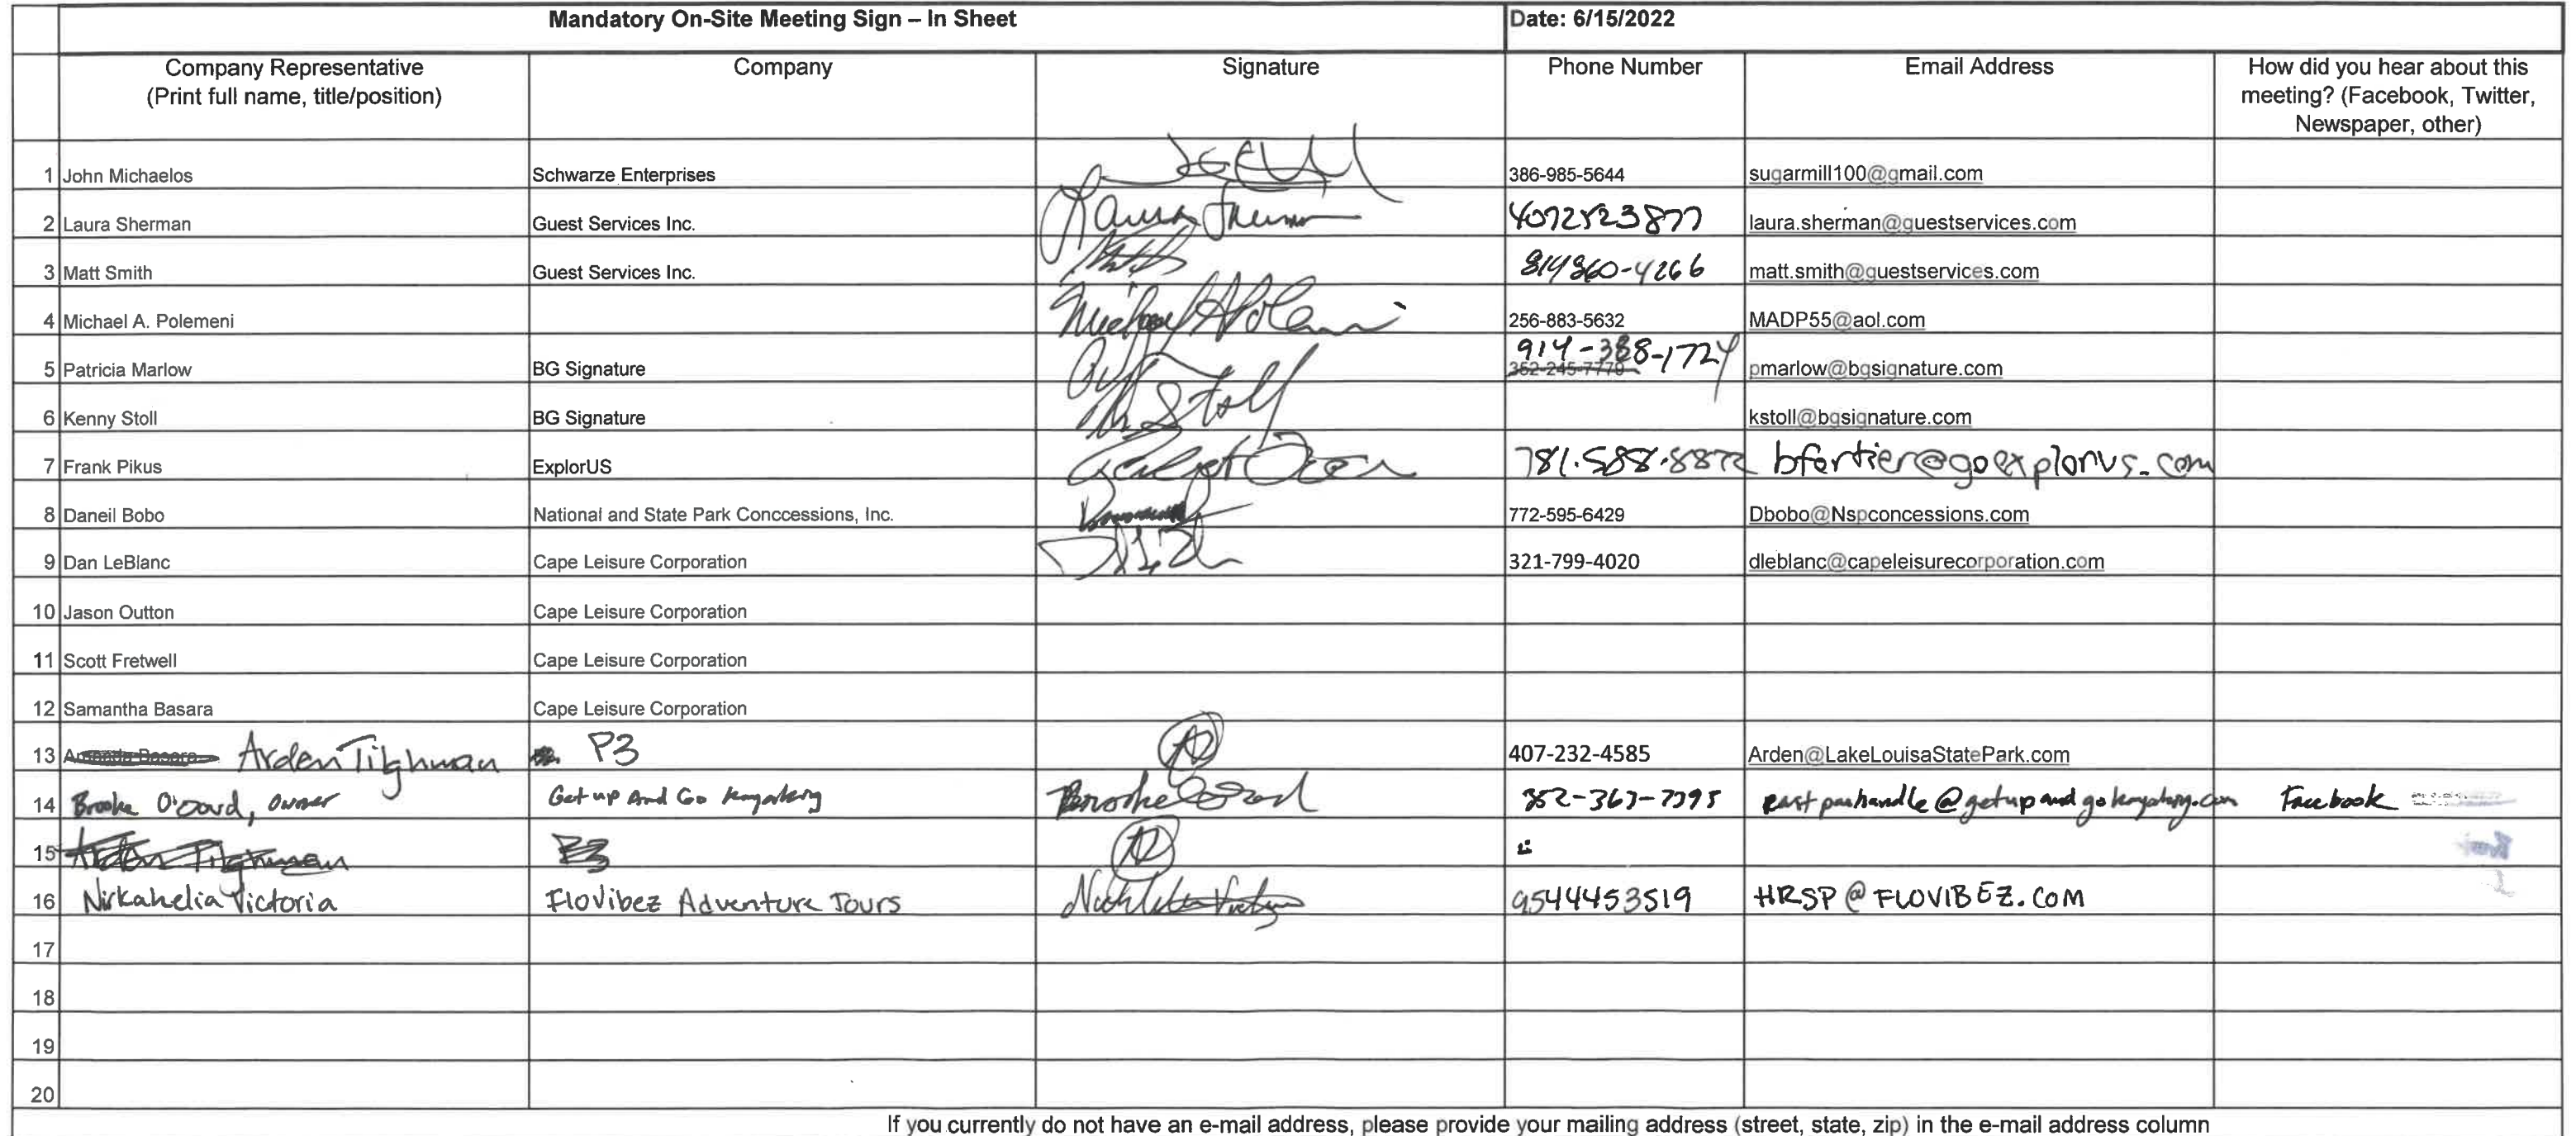 Mandatory On-Site Meeting Sign – In Sheet Date: 6/15/2022
Company Representative Company Signature Phone Number Email Address How did you hear about this
(Print full name, title/position) meeting? (Facebook, Twitter,
Newspaper, other)
1 John Michaelos Schwarze Enterprises 386-985-5644 sugarmill100@gmail.com
2 Laura Sherman Guest Services Inc. Laura Sherman 4072523877 laura.sherman@guestservices.com
3 Matt Smith Guest Services Inc. 814360-4266 matt.smith@guestservices.com
4 Michael A. Polemeni Michael A Polemeni 256-883-5632 MADP55@aol.com
914-388-1724
5 Patricia Marlow BG Signature 352-245-7779 pmarlow@bgsignature.com
6 Kenny Stoll BG Signature Stoll kstoll@bgsignature.com
7 Frank Pikus ExplorUS 781.588.8872 bfortier@goexplorus.com
8 Daneil Bobo National and State Park Conccessions, Inc. 772-595-6429 Dbobo@Nspconcessions.com
9 Dan LeBlanc Cape Leisure Corporation 321-799-4020 dleblanc@capeleisurecorporation.com
10 Jason Outton Cape Leisure Corporation
11 Scott Fretwell Cape Leisure Corporation
12 Samantha Basara Cape Leisure Corporation
13 Arden Tilghman P3 407-232-4585 Arden@LakeLouisaStatePark.com
14 Brooke owner Get up And Go Kayaking Brooke 352-363-7395 eastpanhandle@getupandgokayaking.com Facebook
15 Arden Tilghman P3
16 Nirkahelia Victoria FloVibez Adventure Tours 9544453519 HRSP@FLOVIBEZ.COM
17
18
19
20
If you currently do not have an e-mail address, please provide your mailing address (street, state, zip) in the e-mail address column